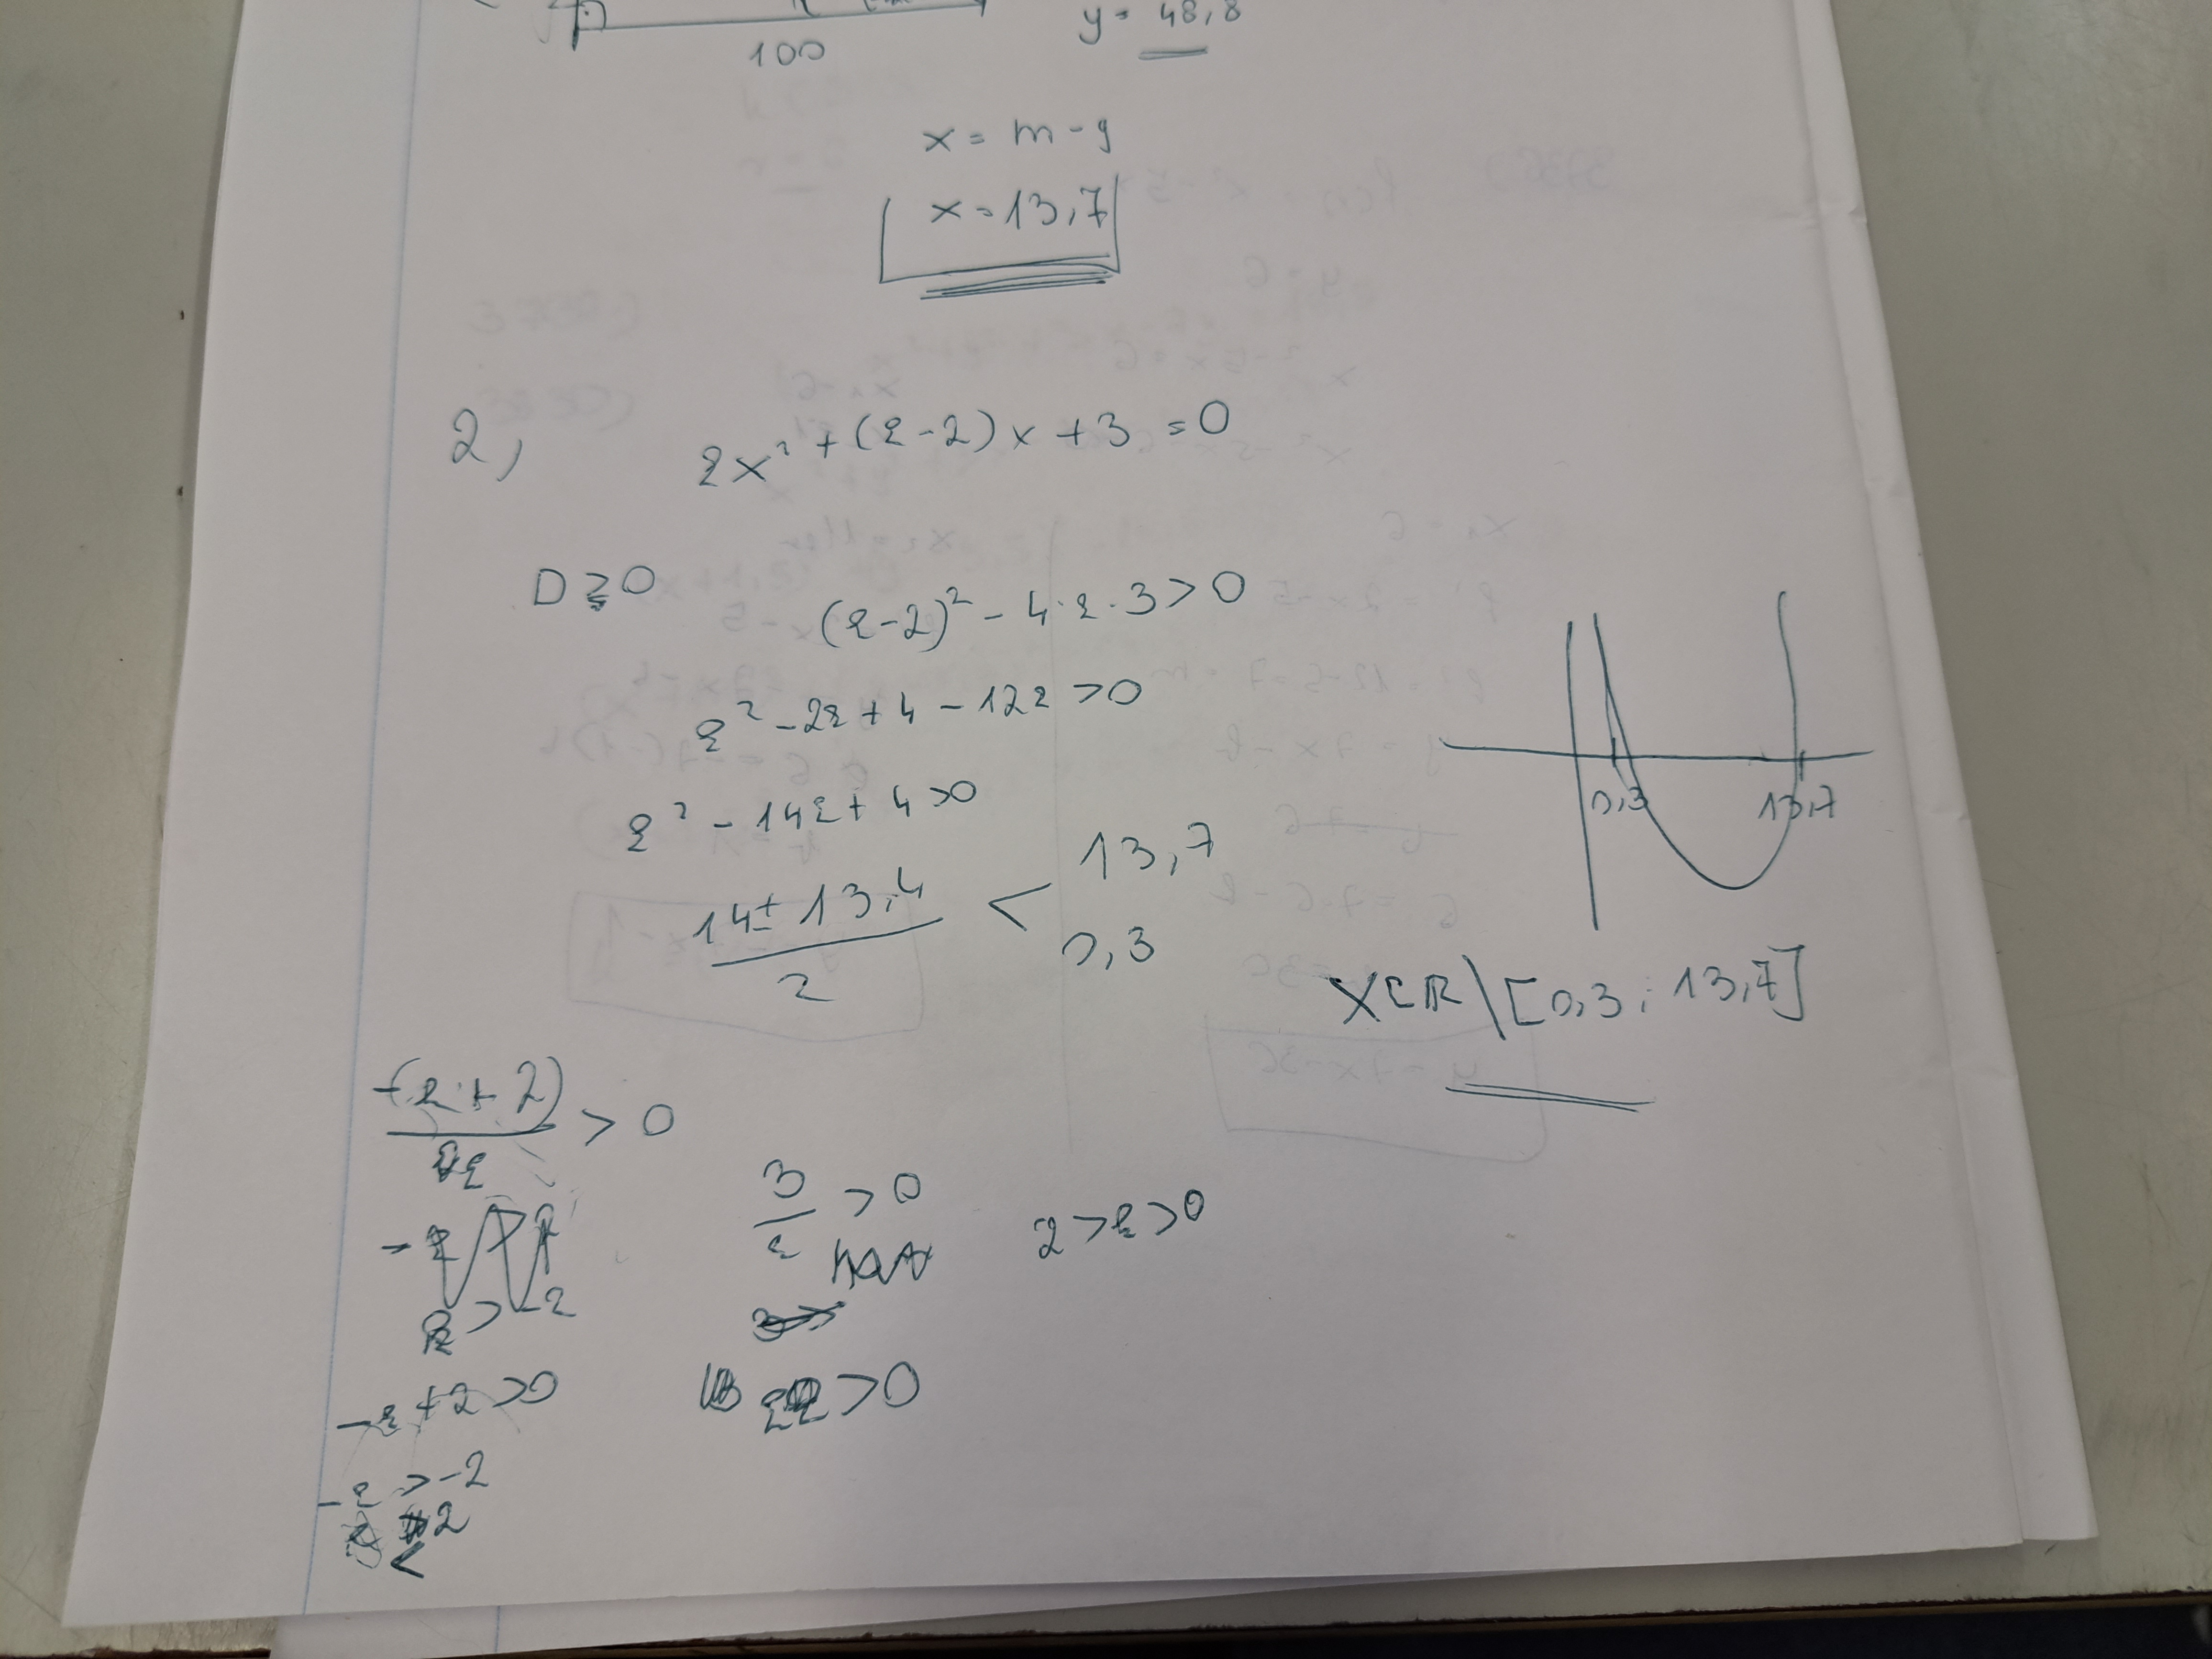 100
y = 48,8
x = m - y
x = 13,7
2,
kx² + (k-2)x + 3 = 0
D ≥ 0
(k-2)² - 4·k·3 > 0
k² - 2k + 4 - 12k > 0
k² - 14k + 4 > 0
14 ± 13,4 / 2 < 13,7
0,3
0,3 13,7
x∈R\[0,3; 13,7]
-(k+2) / k > 0
3/k > 0
2 > k > 0
k > -2
-k + 2 > 0
k > 0
-k > -2
k < 2